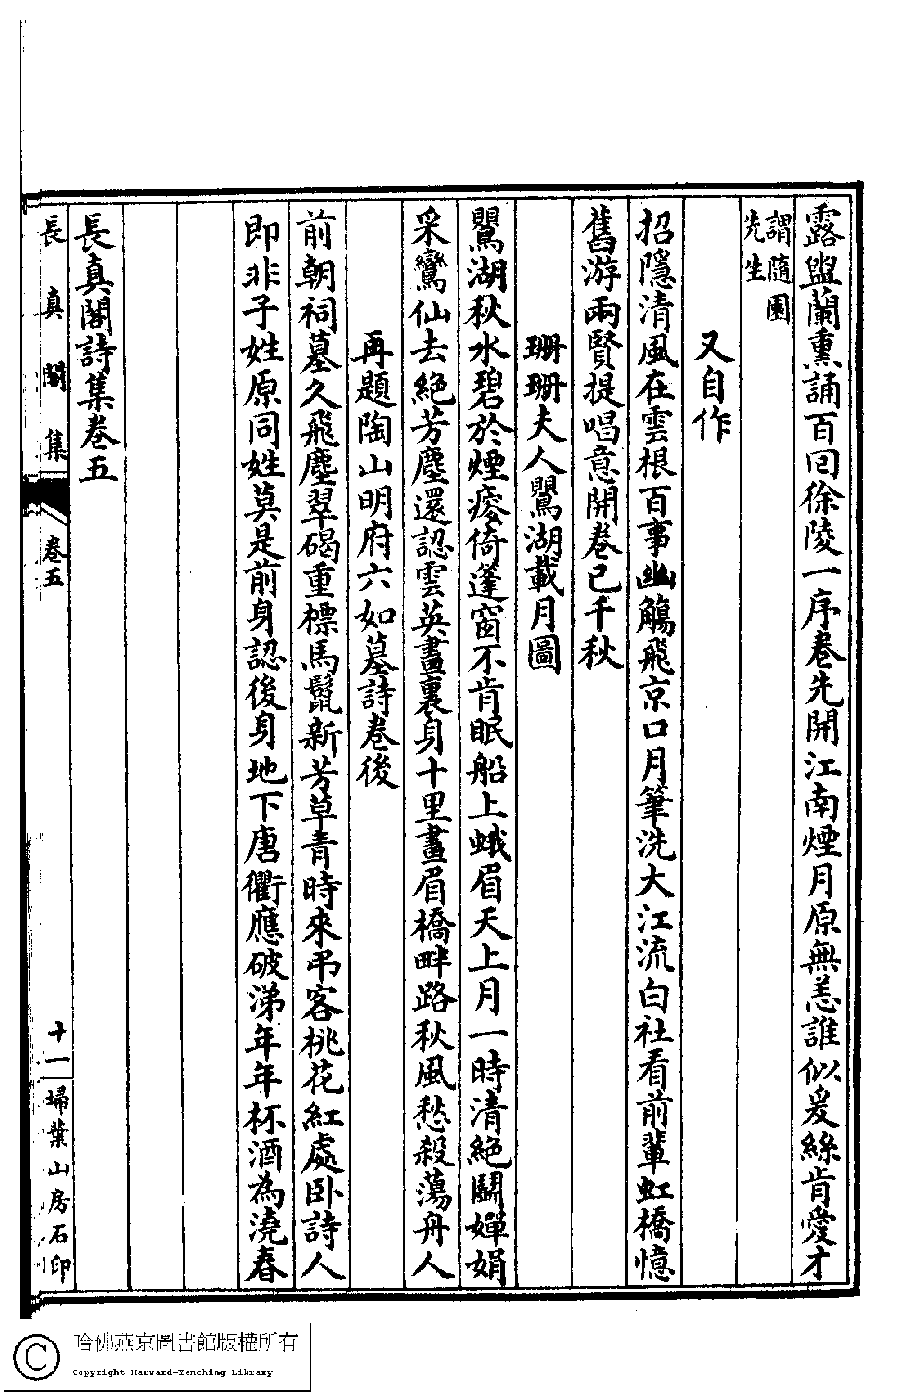 露盥蘭熏誦百回徐陵一序卷先開江南煙月原無恙誰似爰絲肯愛才
謂隨園
先生
又自作
招隱清風在雲根百事幽觴飛京口月筆洗大江流白社看前輩虹橋憶
舊游兩賢提唱意開卷已千秋
珊珊夫人鸎湖載月圖
鸎湖秋水碧於煙痠倚篷窗不肯眠船上蛾眉天上月一時清絕鬭嬋娟
采鸞仙去絕芳塵還認雲英畫裏身十里畫眉橋畔路秋風愁殺蕩舟人
再題陶山明府六如墓詩卷後
前朝祠墓久飛塵翠碣重標馬鬣新芳草青時來弔客桃花紅處臥詩人
即非子姓原同姓莫是前身認後身地下唐衢應破涕年年杯酒為澆春
長真閣詩集卷五
長真閣集
卷五
十一
埽葉山房石印
哈佛燕京圖書館版權所有
Copyright Harvard-Yenching Library